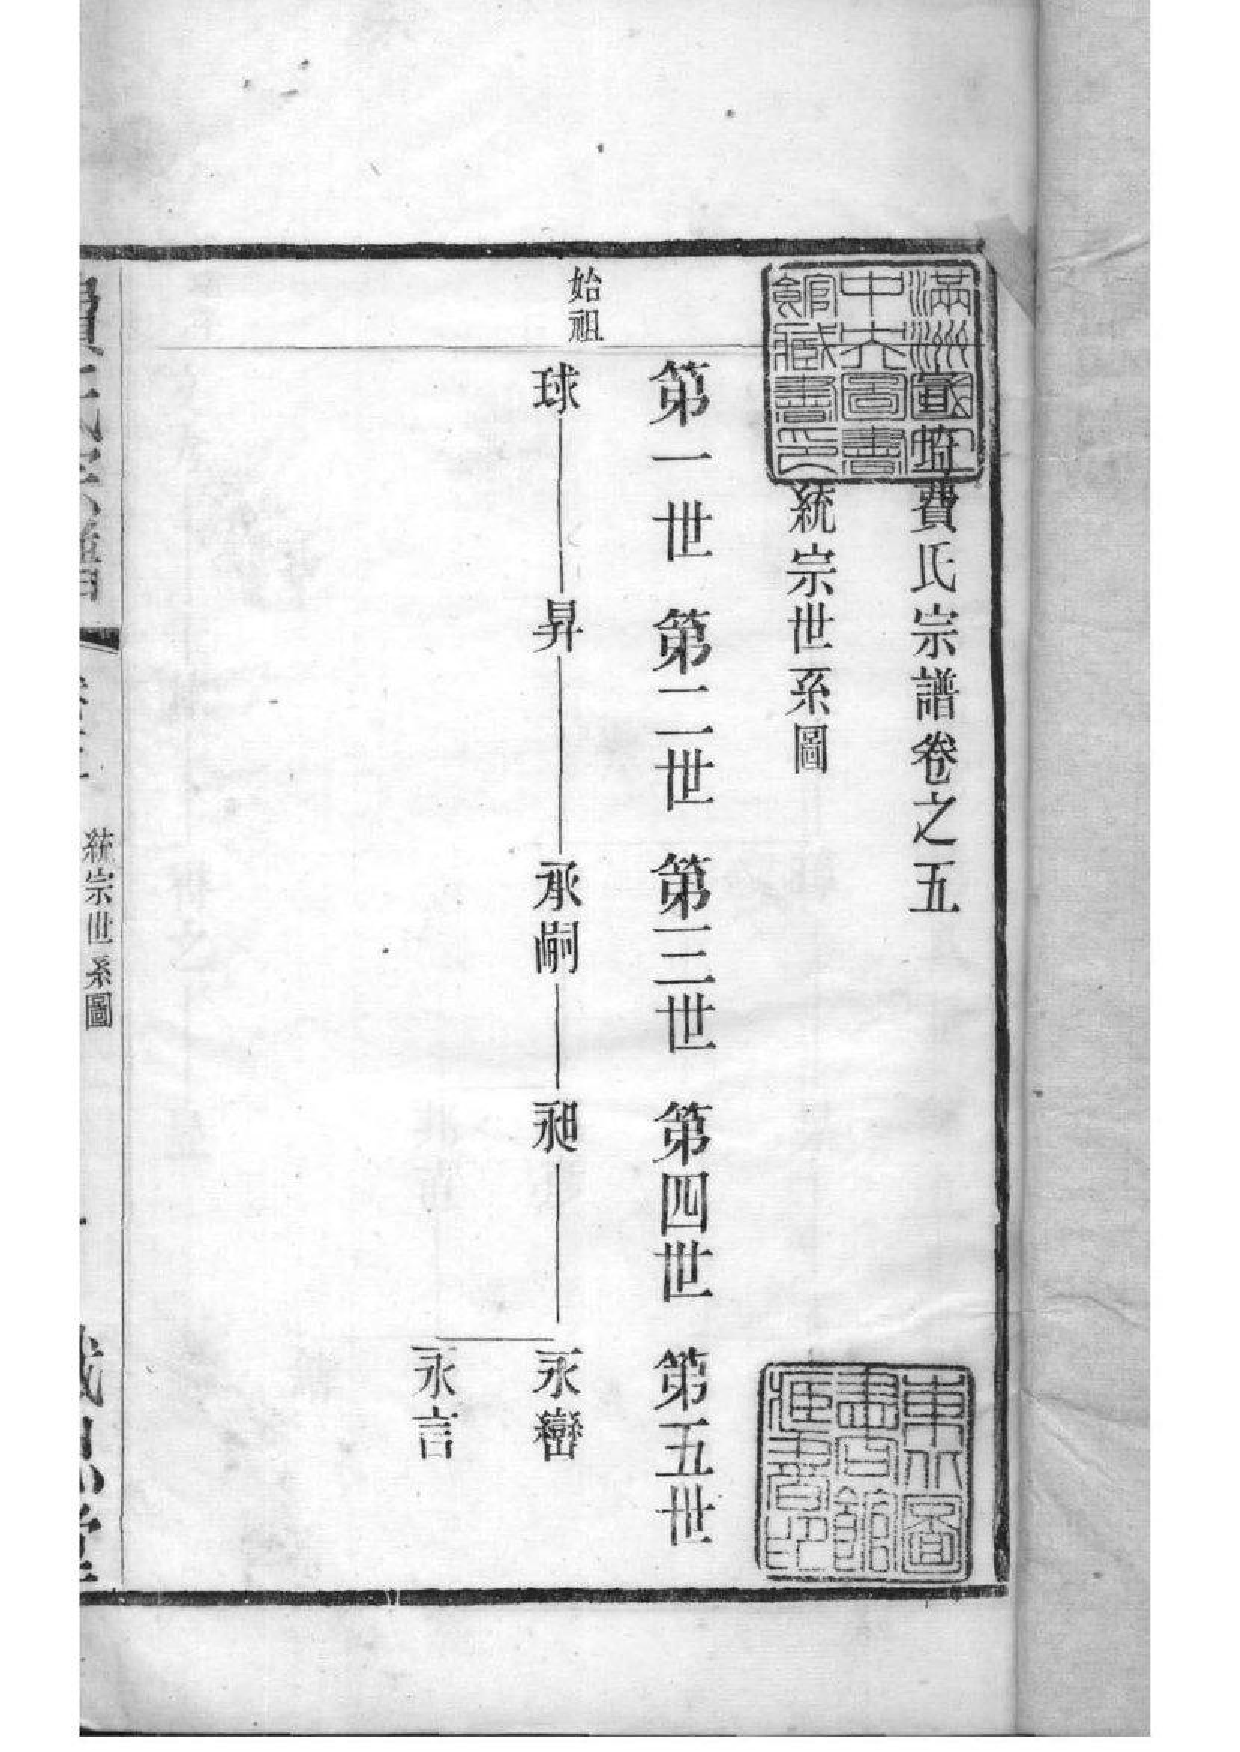 滿洲國立
中央圖書
館藏書印
費氏宗譜卷之五
統宗世系圖
第一世 第二世 第三世 第四世 第五世
始祖
球 昇 承嗣 昶 永
永言
東北圖
費氏宗譜
統宗世系圖